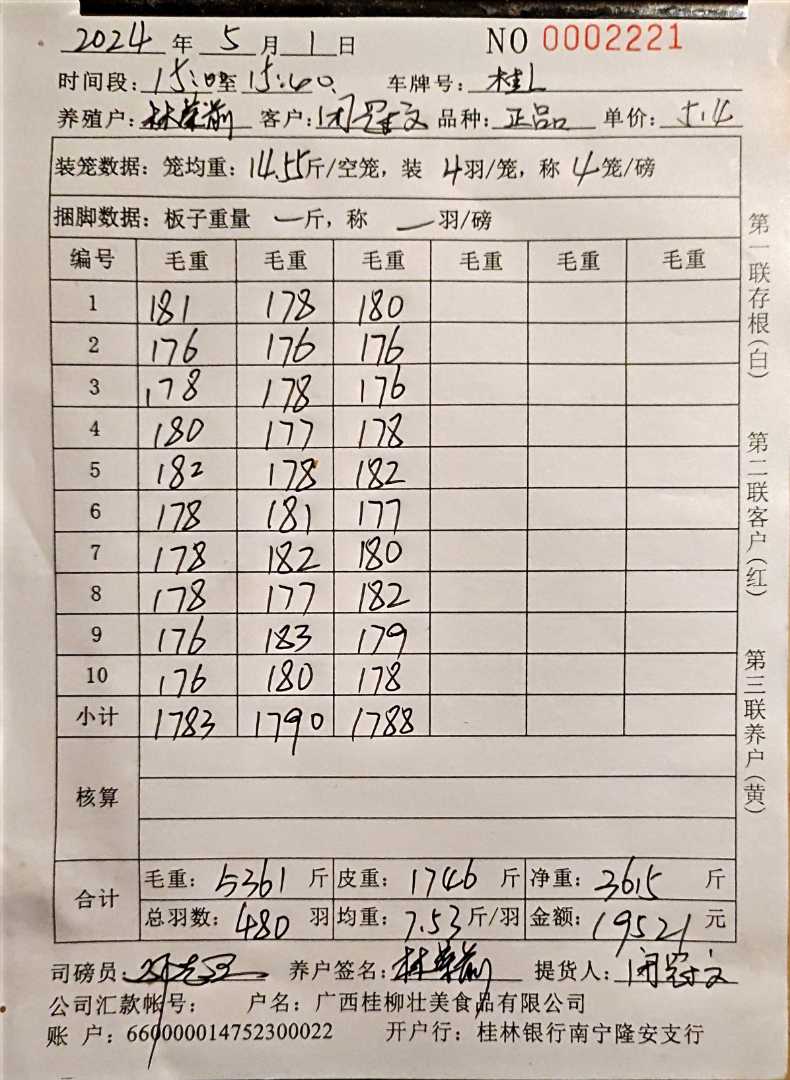 2024 年 5 月 1 日 NO 0002221
时间段: 15:00至15:40. 车牌号: 桂L
养殖户: 林荣前 客户: 闭冠文 品种: 正品 单价: 5.4
装笼数据: 笼均重: 14.55斤/空笼, 装 4羽/笼, 称 4笼/磅
捆脚数据: 板子重量 一斤, 称 一羽/磅
编号 毛重 毛重 毛重 毛重 毛重 毛重
1 181 178 180
2 176 176 176
3 178 178 176
4 180 177 178
5 182 178 182
6 178 181 177
7 178 182 180
8 178 177 182
9 176 183 179
10 176 180 178
小计 1783 1790 1788
核算
合计 毛重: 5361 斤 皮重: 1746 斤 净重: 3615 斤
总羽数: 480 羽 均重: 7.53斤/羽 金额: 19521 元
司磅员: 养户签名: 林荣前 提货人: 闭冠文
公司汇款帐号: 户名: 广西桂柳壮美食品有限公司
账 户: 660000014752300022 开户行: 桂林银行南宁隆安支行
第一联存根(白) 第二联客户(红) 第三联养户(黄)